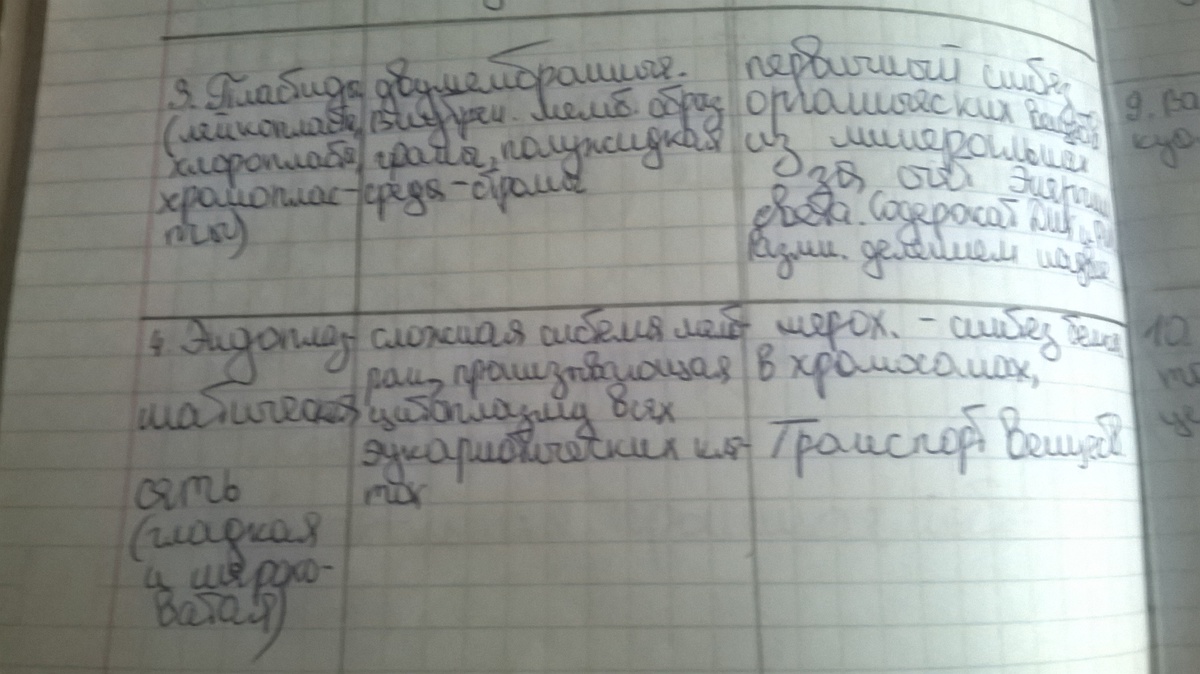 3. Пластиды
(лейкопласты
хлоропласты
хромоплас-
ты)
двумембранные.
внутрен. мемб. образ
граны, полужидкая
среда - строма
первичный синтез
органических веществ
из минеральных
за счёт энергии
света. Содержат ДНК и
размн. делением надвое
4. Эндоплаз
матическая
сеть
(гладкая
и шерохо-
ватая)
сложная система мемб
ран, пронизывающая
цитоплазму всех
эукариотических кле
ток
шерох. - синтез белка
в хромосомах,
Транспорт веществ
9. Ва
куо
10.